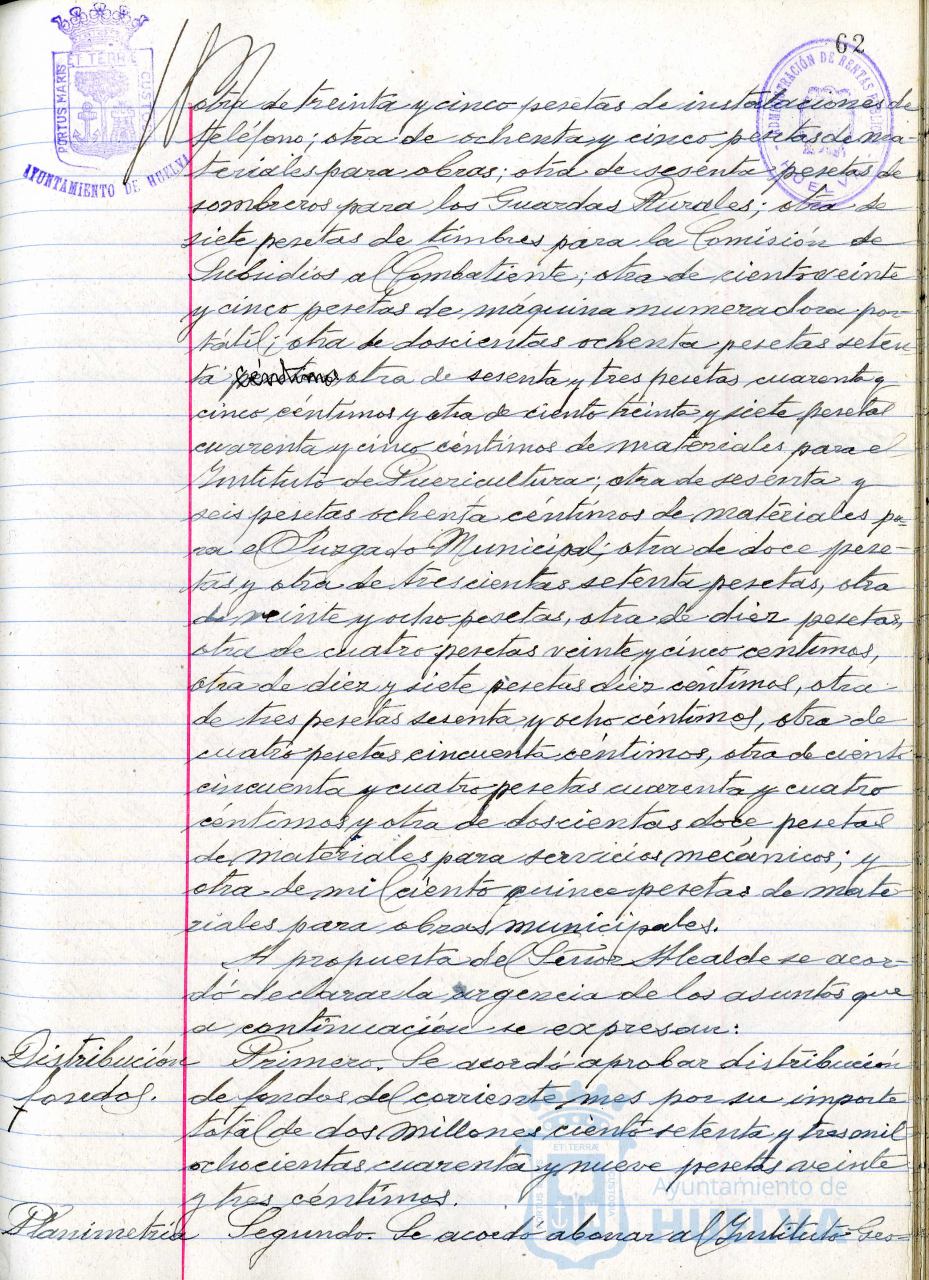 62
ET TERRÆ
PORTUS MARIS
CUSTODIA
AYUNTAMIENTO DE HUELVA
ADMINISTRACIÓN DE RENTAS
HUELVA
otra de treinta y cinco pesetas de instalaciones de
teléfono; otra de ochenta y cinco pesetas de ma-
teriales para obras; otra de sesenta pesetas de
sombreros para los Guardas Rurales; otra de
siete pesetas de timbres para la Comisión de
Subsidios al Combatiente; otra de ciento veinte
y cinco pesetas de máquina numeradora por-
tátil; otra de doscientas ochenta pesetas seten-
ta céntimos, otra de sesenta y tres pesetas cuarenta y
cinco céntimos y otra de ciento treinta y siete pesetas
cuarenta y cinco céntimos de materiales para el
Instituto de Puericultura; otra de sesenta y
seis pesetas ochenta céntimos de materiales pa-
ra el Juzgado Municipal; otra de doce pese-
tas y otra de trescientas setenta pesetas, otra
de veinte y ocho pesetas, otra de diez pesetas,
otra de cuatro pesetas veinte y cinco centimos,
otra de diez y siete pesetas diez céntimos, otra
de tres pesetas sesenta y ocho céntimos, otra de
cuatro pesetas cincuenta céntimos, otra de ciento
cincuenta y cuatro pesetas cuarenta y cuatro
céntimos y otra de doscientas doce pesetas
de materiales para servicios mecánicos; y
otra de mil ciento quince pesetas de mate-
riales para obras municipales.
A propuesta del Señor Alcalde se acor-
dó declarar la urgencia de los asuntos que
a continuación se expresan:
Distribución Primero. Se acordó aprobar distribución
fondos. de fondos del corriente mes por su importe
total de dos millones ciento setenta y tres mil
ochocientas cuarenta y nueve pesetas veinte
y tres céntimos.
Planimetría Segundo. Se acordó abonar al Instituto Geo-
ET TERRÆ
Ayuntamiento de
HUELVA